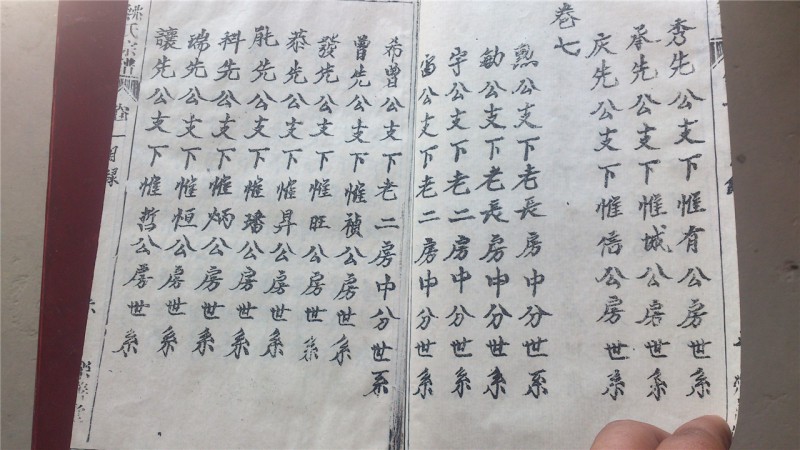 秀先公支下惟有公房世系
承先公支下惟城公房世系
庆先公支下惟信公房世系
卷七
勲公支下老長房中分世系
敏公支下老長房中分世系
宇公支下老二房中分世系
宙公支下老二房中分世系
希曾公支下老二房中分世系
曾先公支下惟禎公房世系
發先公支下惟旺公房世系
恭先公支下惟昇公房世系
能先公支下惟璠公房世系
科先公支下惟炳公房世系
瑞先公支下惟恒公房世系
讓先公支下惟哲公房世系
氏宗譜
卷一目録